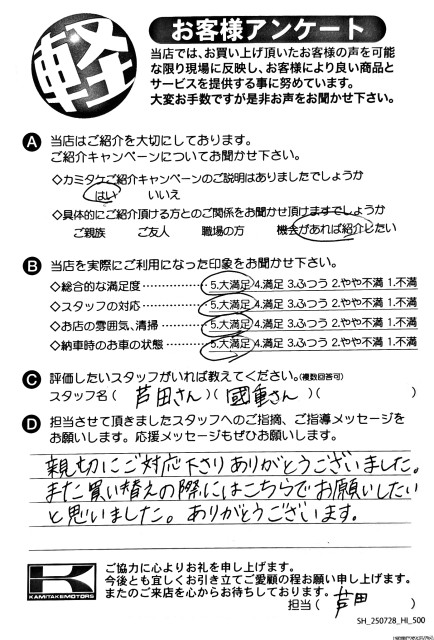 軽
お客様アンケート
当店では、お買い上げ頂いたお客様の声を可能
な限り現場に反映し、お客様により良い商品と
サービスを提供する事に努めています。
大変お手数ですが是非お声をお聞かせ下さい。
A 当店はご紹介を大切にしております。
ご紹介キャンペーンについてお聞かせ下さい。
◇カミタケご紹介キャンペーンのご説明はありましたでしょうか
はい いいえ
◇具体的にご紹介頂ける方とのご関係をお聞かせ頂けますでしょうか
ご親族 ご友人 職場の方 機会があれば紹介したい
B 当店を実際にご利用になった印象をお聞かせ下さい。
◇総合的な満足度……………5.大満足 4.満足 3.ふつう 2.やや不満 1.不満
◇スタッフの対応……………5.大満足 4.満足 3.ふつう 2.やや不満 1.不満
◇お店の雰囲気、清掃…………5.大満足 4.満足 3.ふつう 2.やや不満 1.不満
◇納車時のお車の状態…………5.大満足 4.満足 3.ふつう 2.やや不満 1.不満
C 評価したいスタッフがいれば教えてください。(複数回答可)
スタッフ名( 芦田さん )( 國重さん )( )
D 担当させて頂きましたスタッフへのご指摘、ご指導メッセージを
お願いします。応援メッセージもぜひお願いします。
親切にご対応下さりありがとうございました。
また買い替えの際にはこちらでお願いしたい
と思いました。ありがとうございます。
K
KAMITAKEMOTORS
ご協力に心よりお礼を申し上げます。
今後とも宜しくお引き立てご愛顧の程お願い申し上げます。
またのご来店を心からお待ちしております。
担当( 芦田 )
SH_250728_HI_500